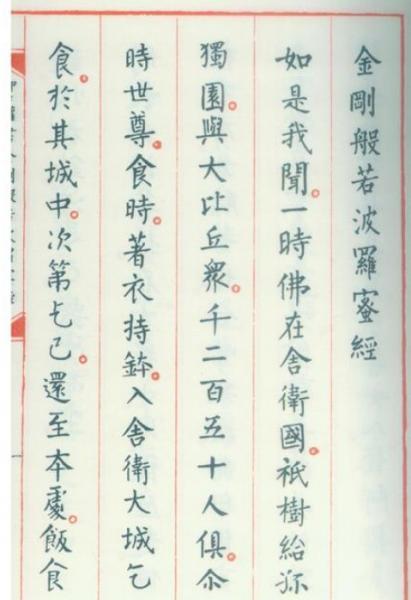 金剛般若波羅蜜經
如是我聞。一時佛在舍衛國。祇樹給孤
獨園。與大比丘眾。千二百五十人俱。尒
時世尊。食時。著衣持鉢。入舍衛大城乞
食。於其城中。次第乞已。還至本處。飯食